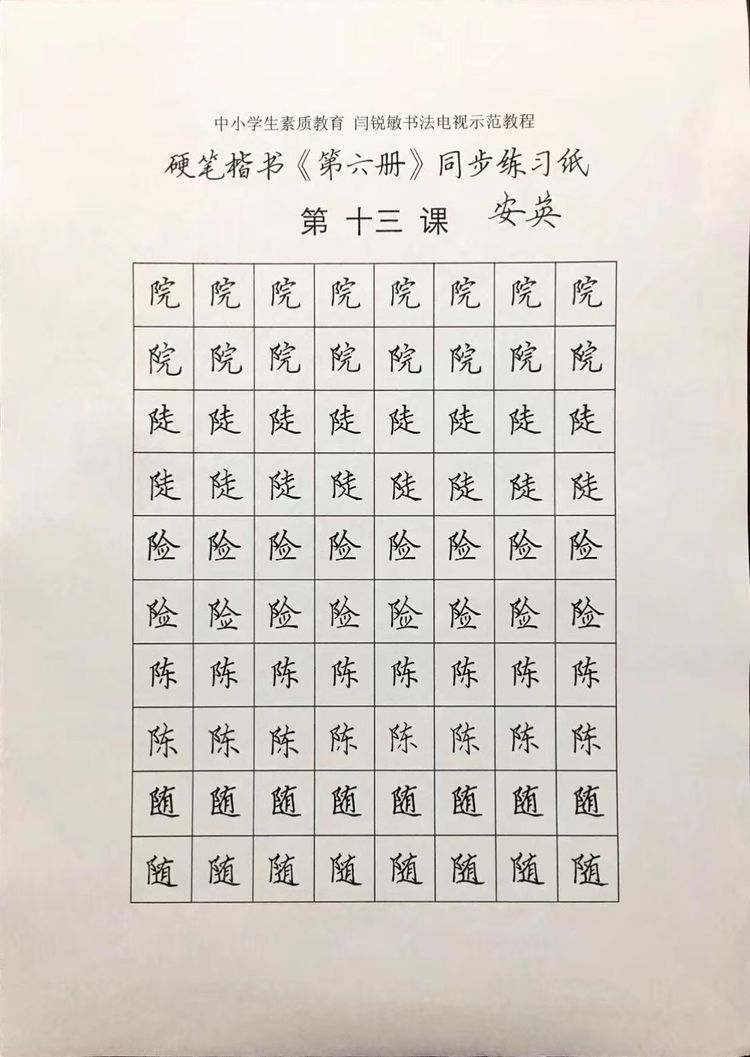 中小学生素质教育 闫锐敏书法电视示范教程
硬笔楷书《第六册》同步练习纸
第 十三 课 安英
院 院 院 院 院 院 院 院
院 院 院 院 院 院 院 院
陡 陡 陡 陡 陡 陡 陡 陡
陡 陡 陡 陡 陡 陡 陡 陡
险 险 险 险 险 险 险 险
险 险 险 险 险 险 险 险
陈 陈 陈 陈 陈 陈 陈 陈
陈 陈 陈 陈 陈 陈 陈 陈
随 随 随 随 随 随 随 随
随 随 随 随 随 随 随 随